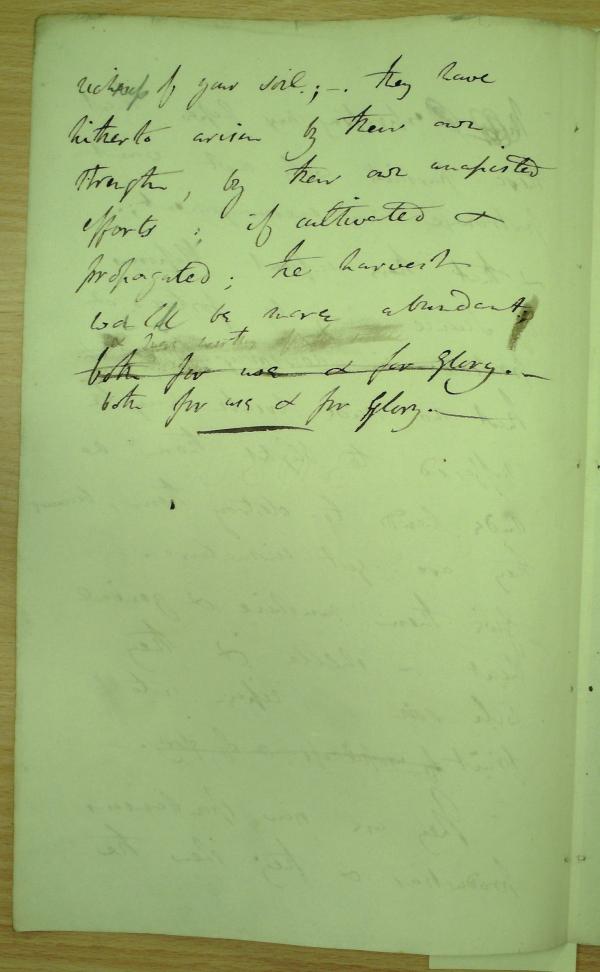 richness of your soil.; -. they have
hitherto arisen by their own
strength, by their own unassisted
efforts; if cultivated &
propagated; the harvest
wd be more abundant;
both for use & for Glory. -
both for use & for Glory. -